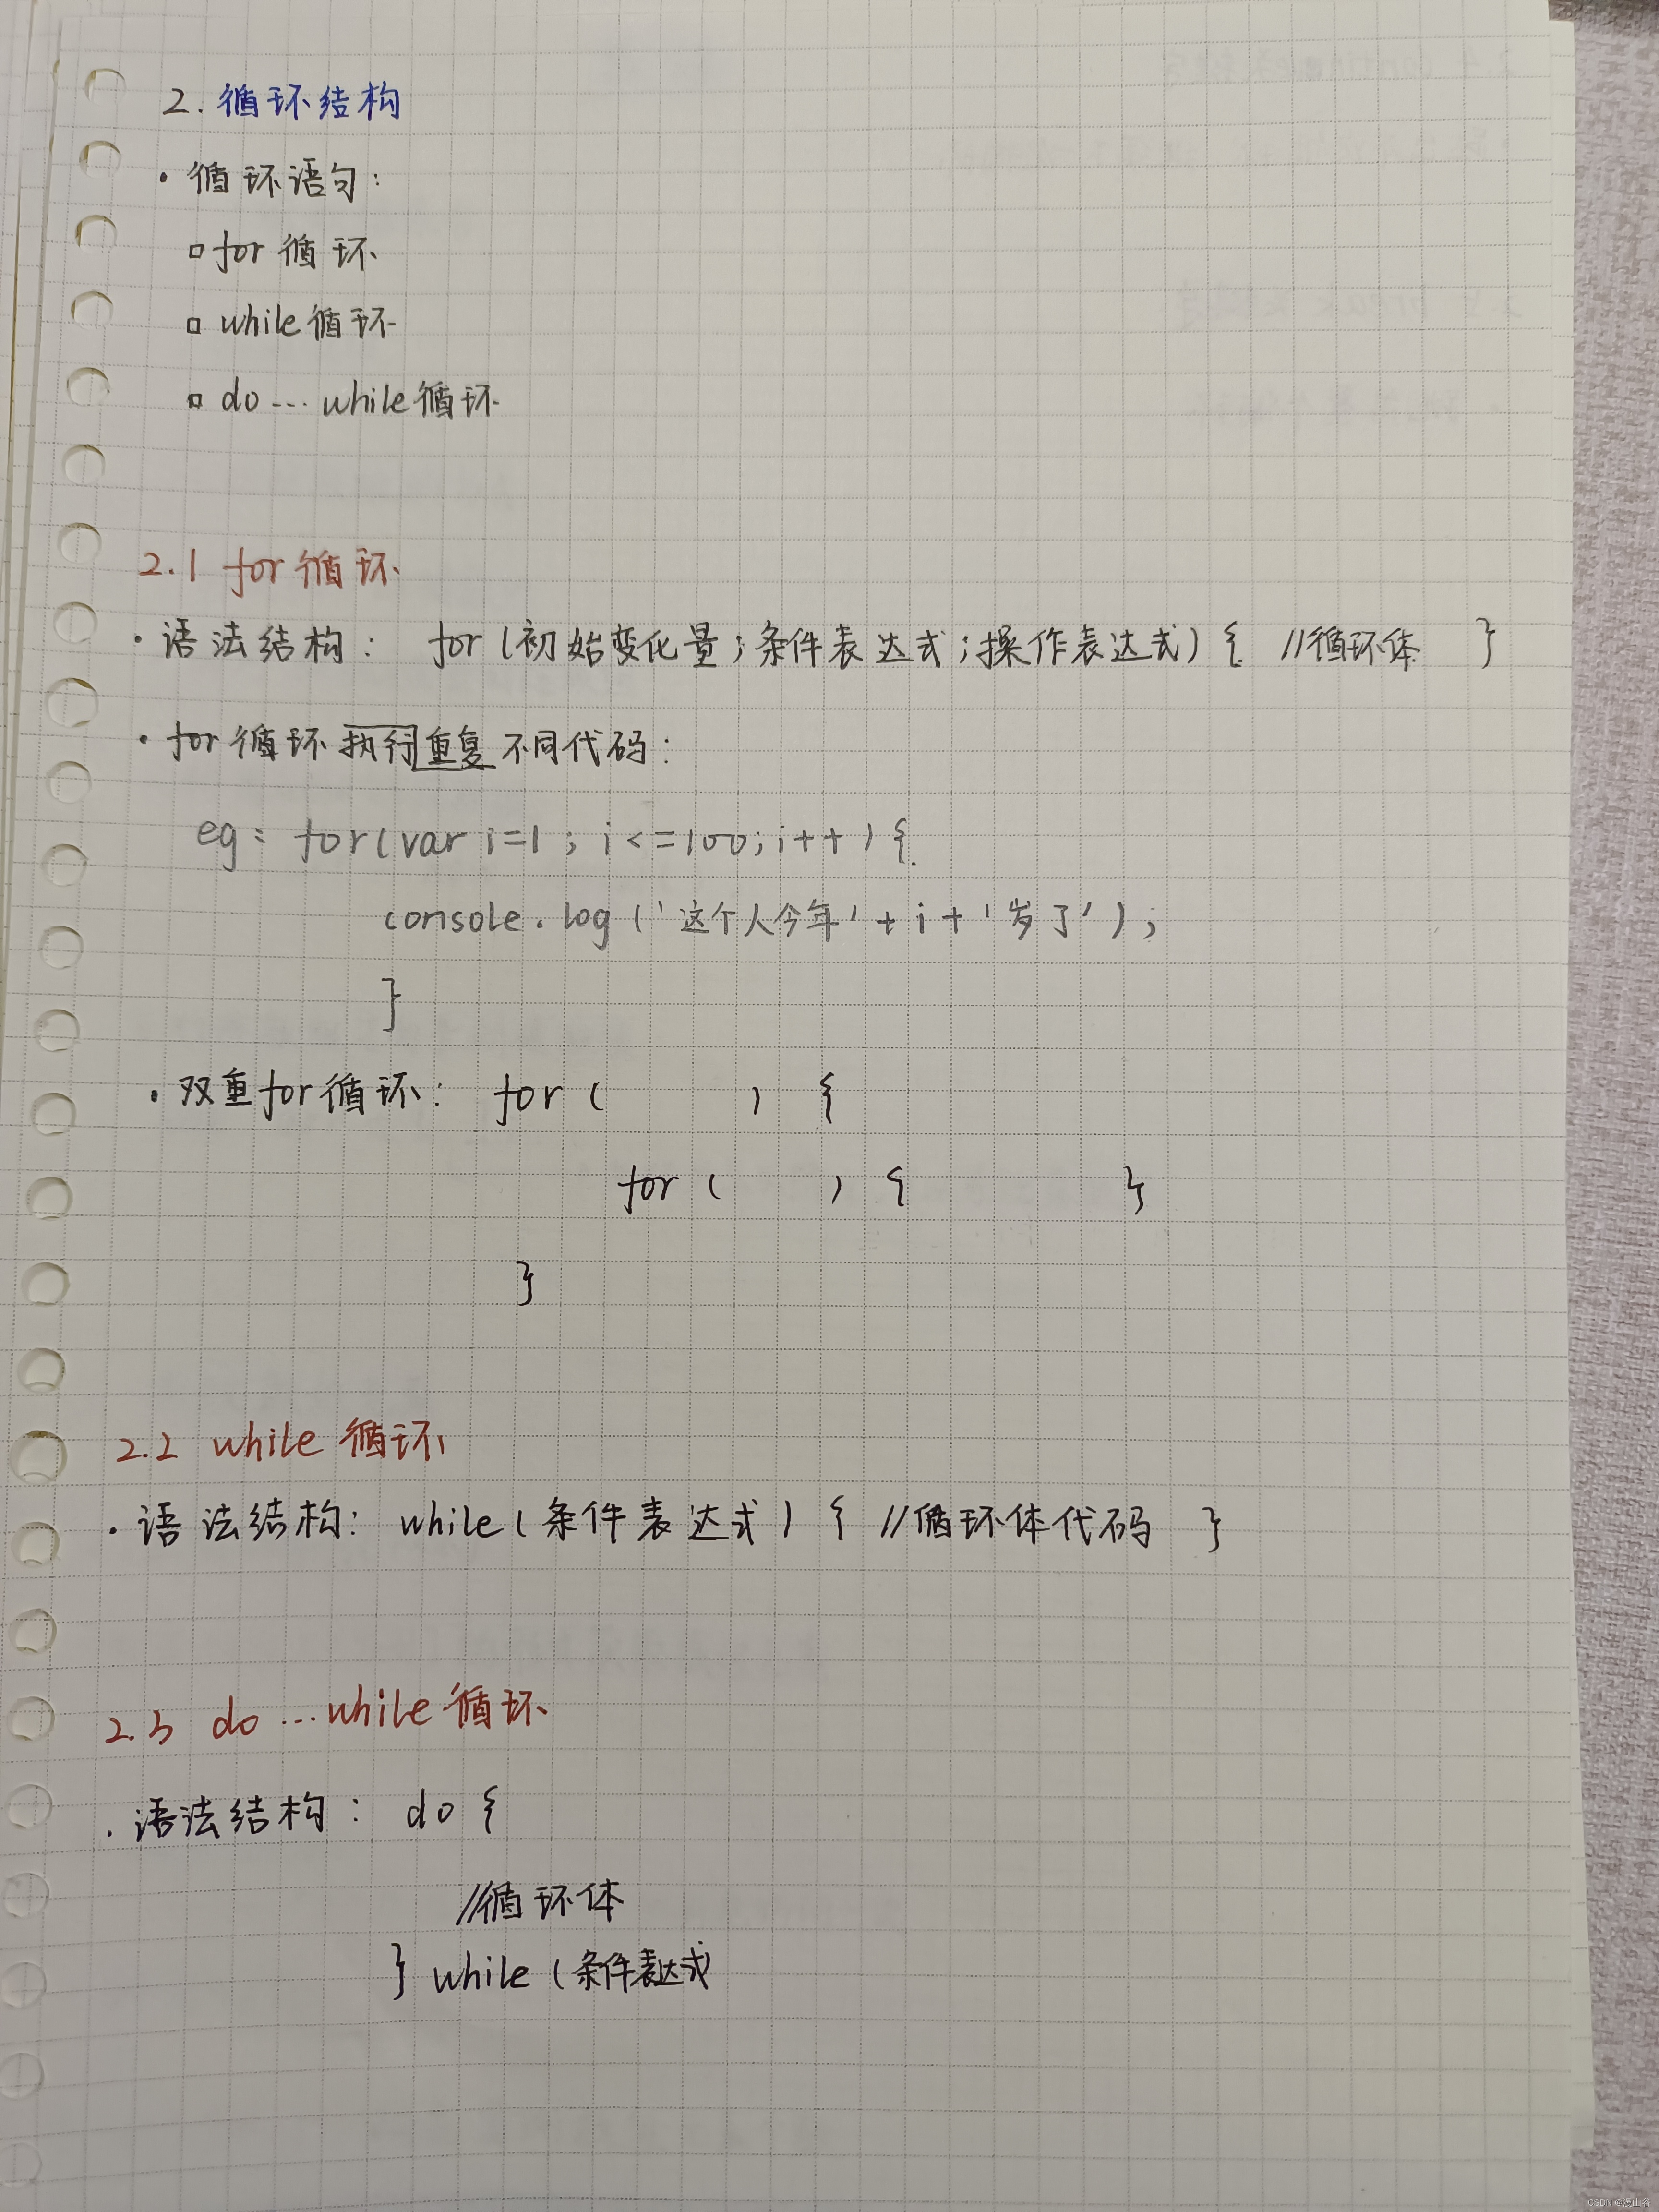 2. 循环结构
· 循环语句:
▫ for 循环
▫ while循环
▫ do ... while循环
2.1 for 循环
· 语法结构: for (初始变化量;条件表达式;操作表达式) { //循环体 }
· for 循环执行重复不同代码:
eg: for(var i=1; i<=100;i++){
console.log('这个人今年'+i+'岁了');
}
· 双重for循环: for ( ) {
for ( ) { }
}
2.2 while 循环
· 语法结构: while(条件表达式) { //循环体代码 }
2.3 do ...while 循环
· 语法结构: do {
//循环体
} while (条件表达式
CSDN @漫山谷